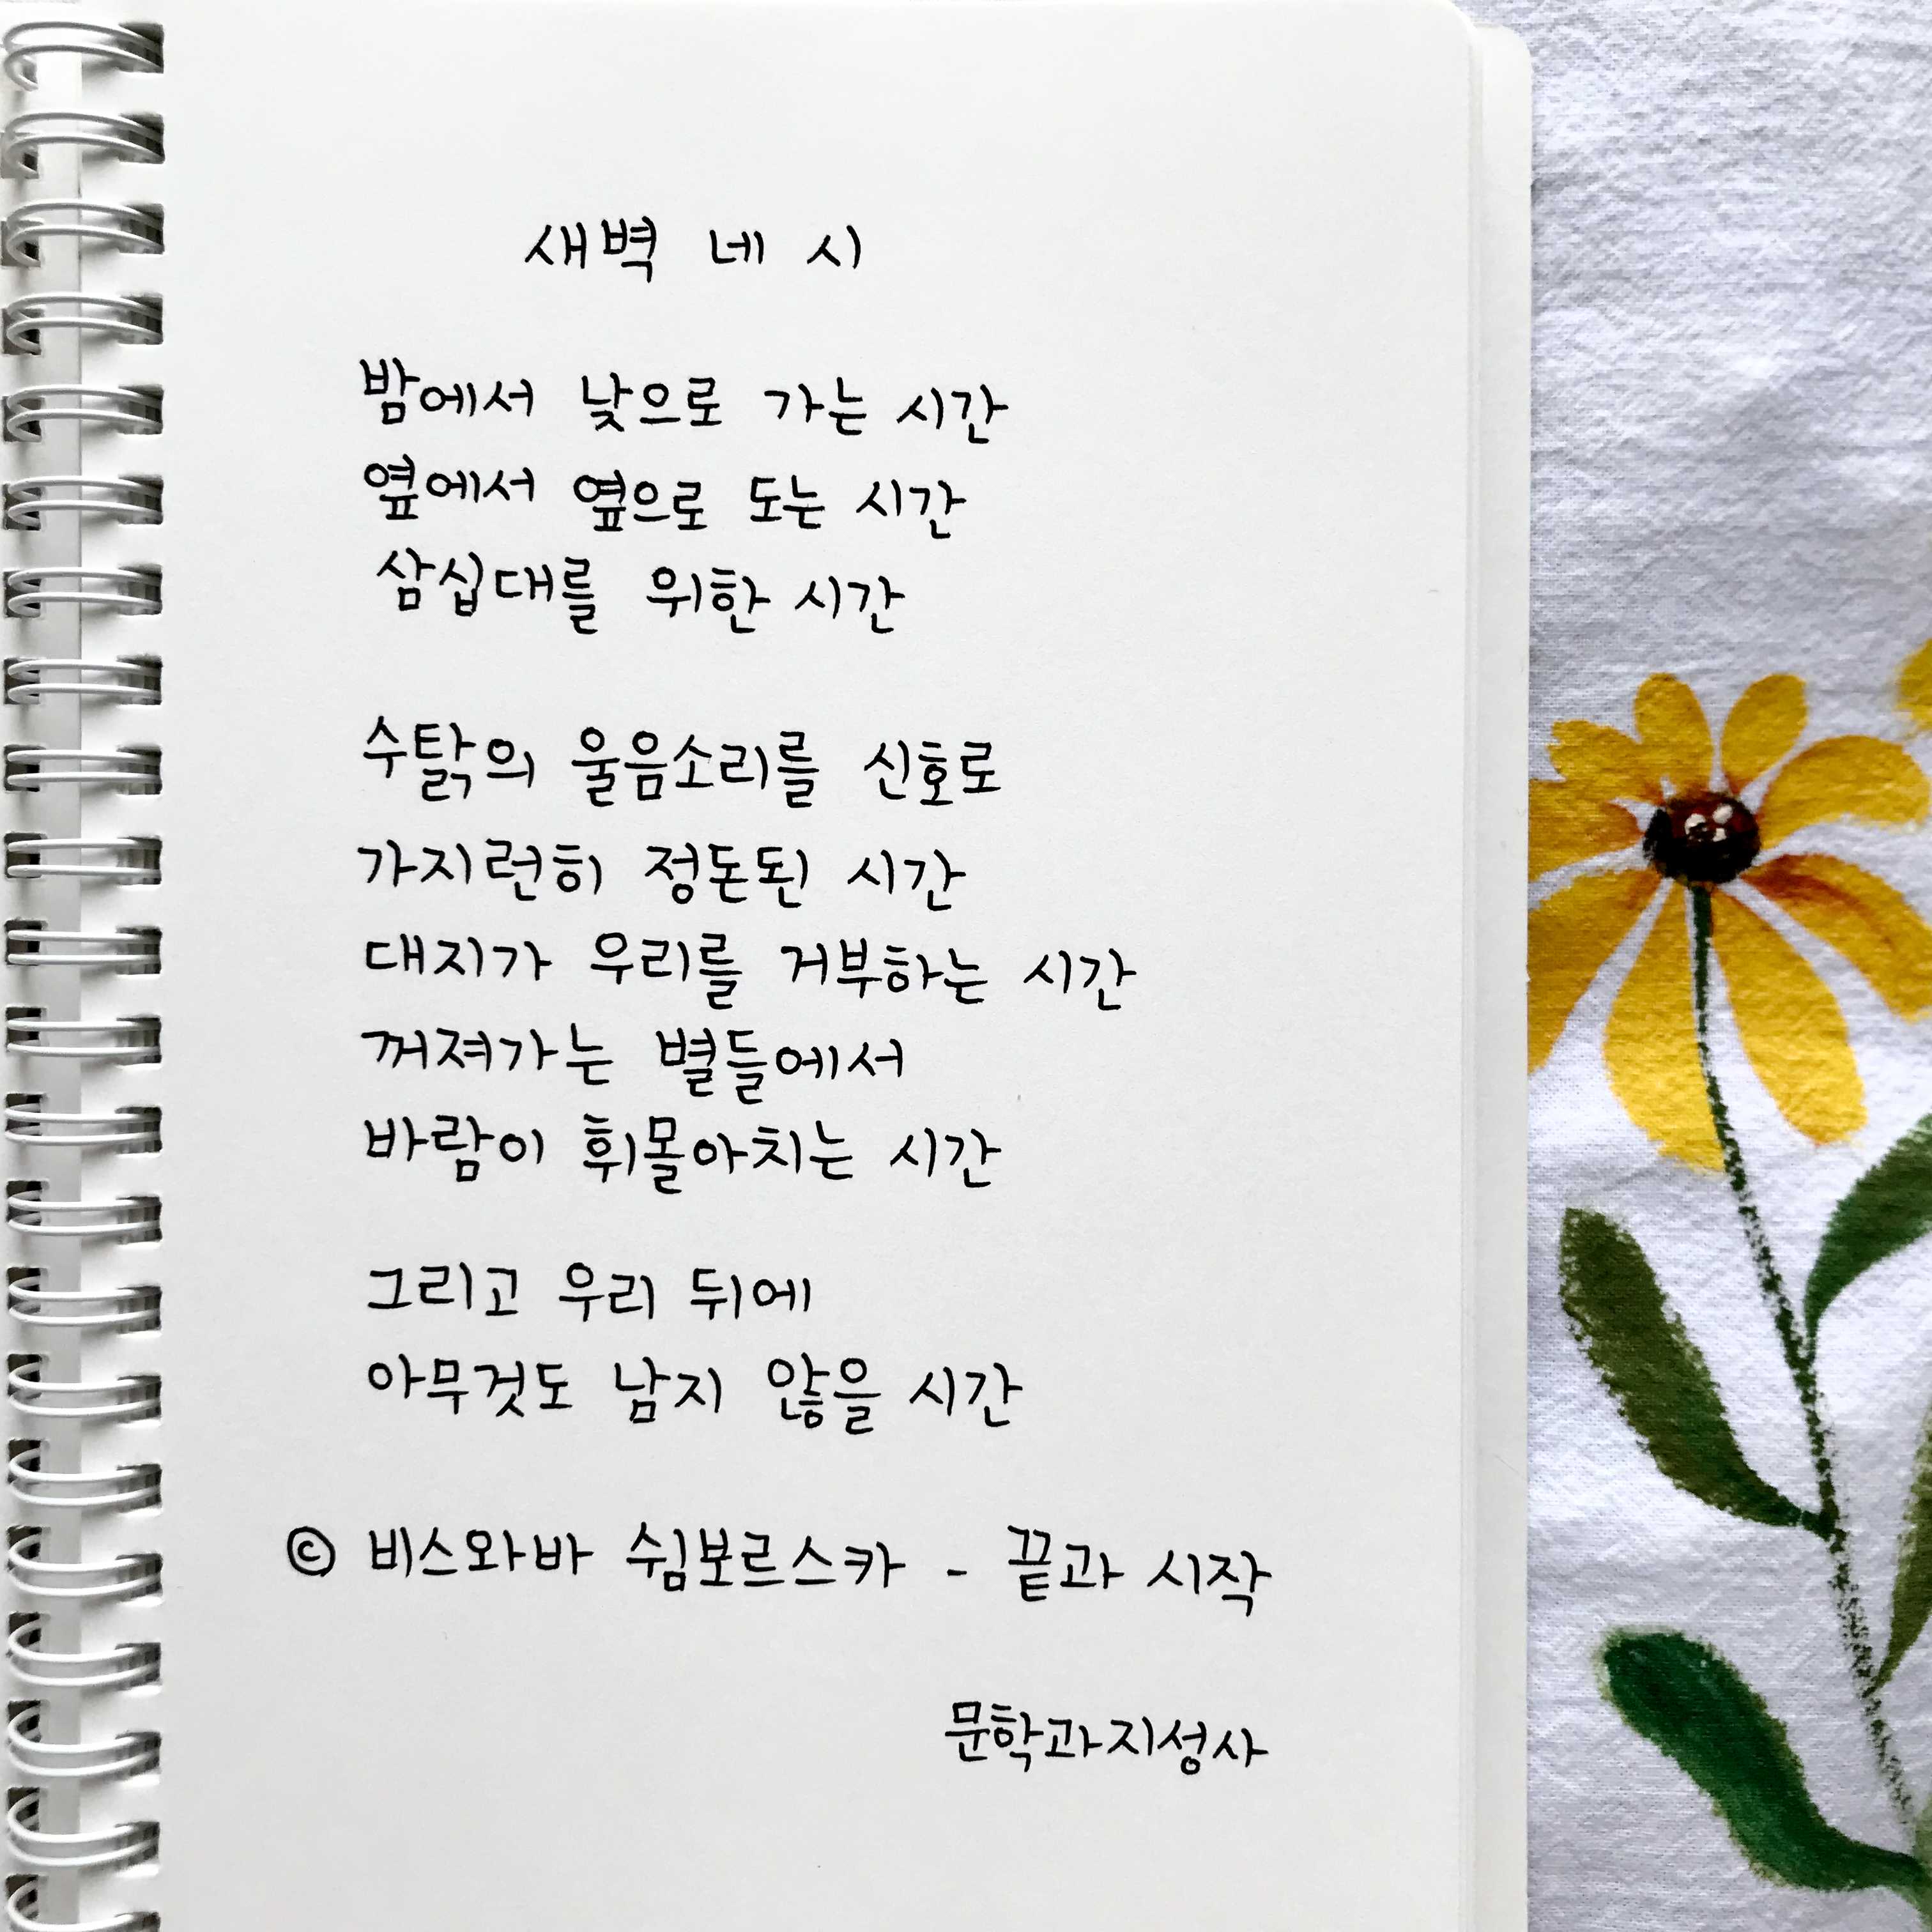 새벽 네 시
밤에서 낮으로 가는 시간
옆에서 옆으로 도는 시간
삼십대를 위한 시간
수탉의 울음소리를 신호로
가지런히 정돈된 시간
대지가 우리를 거부하는 시간
꺼져가는 별들에서
바람이 휘몰아치는 시간
그리고 우리 뒤에
아무것도 남지 않을 시간
© 비스와바 쉼보르스카 - 끝과 시작
문학과지성사